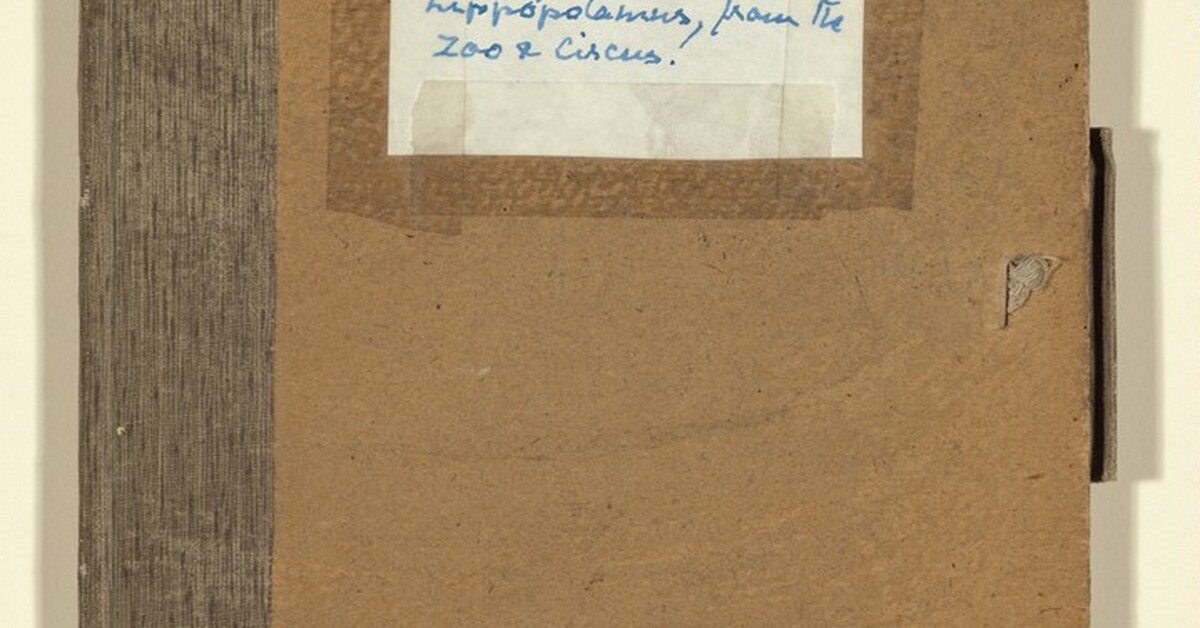 hippopotamus, from the
Zoo & Circus.